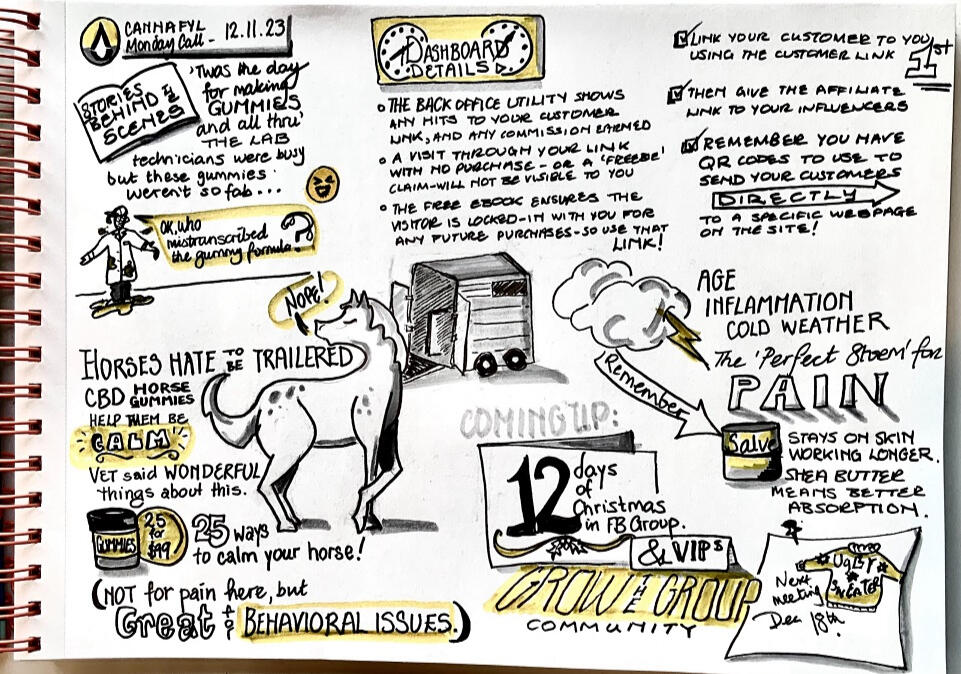 CANNAFYL
Monday Call - 12.11.23
STORIES
BEHIND THE
SCENES
'Twas the day
for making
GUMMIES
and all thru'
THE LAB
technicians were busy
but these gummies
weren't so fab...
OK, who
mistranscribed
the gummy formula?
DASHBOARD
DETAILS
THE BACK OFFICE UTILITY SHOWS
ANY HITS TO YOUR CUSTOMER
LINK, AND ANY COMMISSION EARNED
A VISIT THROUGH YOUR LINK
WITH NO PURCHASE - OR A 'FREEBIE'
CLAIM - WILL NOT BE VISIBLE TO YOU
THE FREE EBOOK ENSURES THE
VISITOR IS LOCKED-IN WITH YOU FOR
ANY FUTURE PURCHASES - SO USE THAT
LINK!
LINK YOUR CUSTOMER TO YOU
USING THE CUSTOMER LINK
1st
THEN GIVE THE AFFILIATE
LINK TO YOUR INFLUENCERS
REMEMBER YOU HAVE
QR CODES TO USE TO
SEND YOUR CUSTOMERS
DIRECTLY
TO A SPECIFIC WEBPAGE
ON THE SITE!
NOPE!
HORSES HATE TO BE TRAILERED
CBD HORSE GUMMIES
HELP THEM BE
CALM
VET said WONDERFUL
things about this.
GUMMIES
25
for
$99
25 ways
to calm your horse!
(NOT for pain here, but
Great for BEHAVIORAL ISSUES.)
AGE
INFLAMMATION
COLD WEATHER
The 'Perfect Storm' for
PAIN
Remember
Salve
STAYS ON SKIN
WORKING LONGER.
SHEA BUTTER
MEANS BETTER
ABSORPTION.
COMING UP:
12 days
of
Christmas
in FB Group.
& VIPs
GROW THE GROUP
COMMUNITY
UGLY
SWEATER
Next
meeting
Dec 18th.